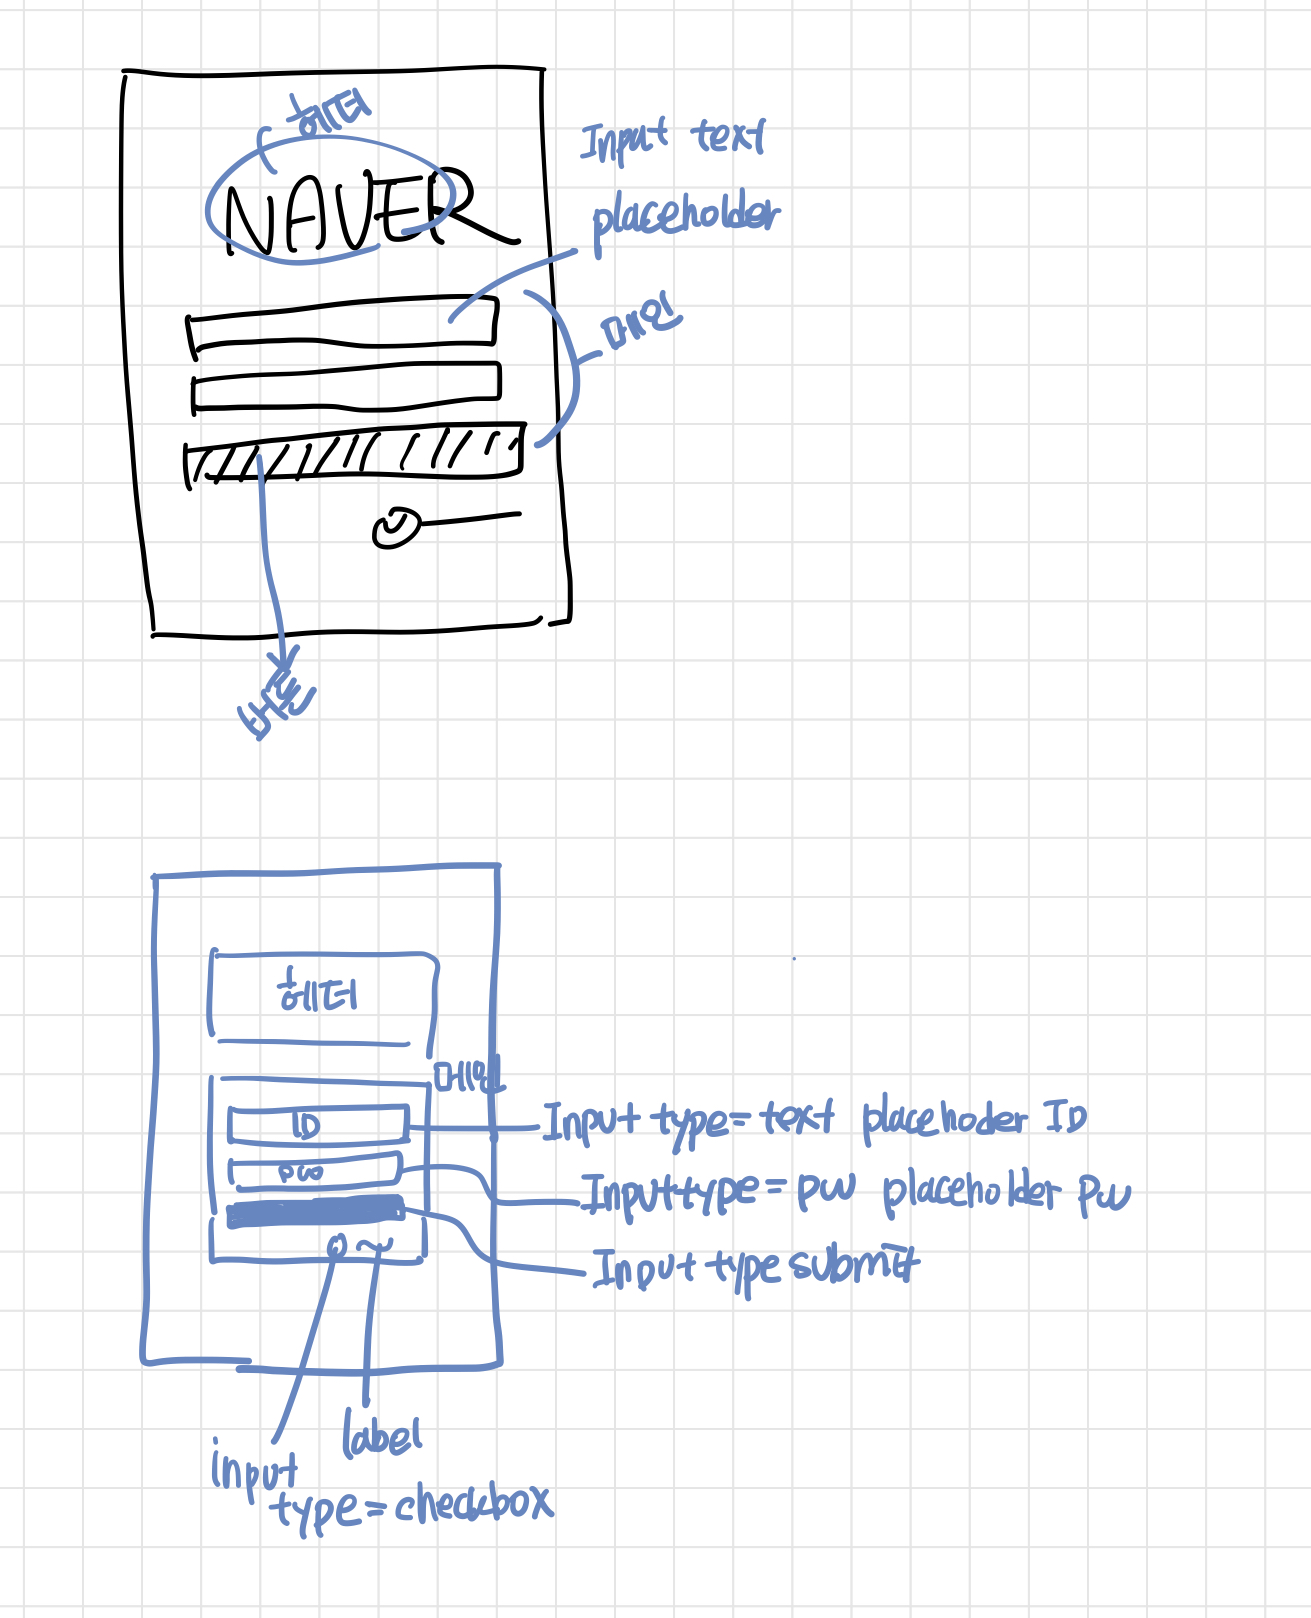 헤더
NAVER
Input text
placeholder
메인
버튼
헤더
메인
ID
pw
Input type=text placehoder ID
Input type=pw placeholder Pw
Input type submit
label
input
type=checkbox